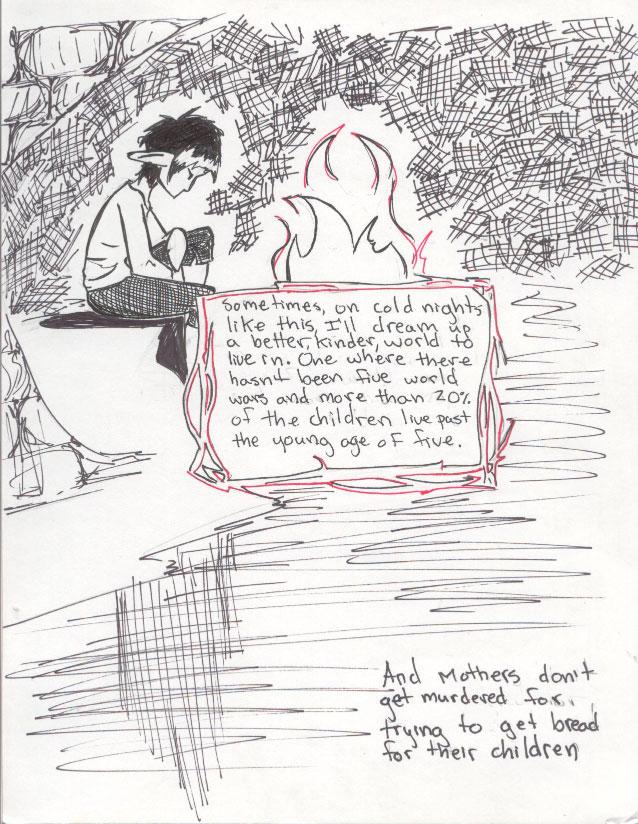 sometimes, on cold nights
like this, I'll dream up
a better, kinder, world to
live in. One where there
hasnt been five world
wars and more than 20%
of the children live past
the young age of five.
And Mothers don't
get murdered for
trying to get bread
for their children